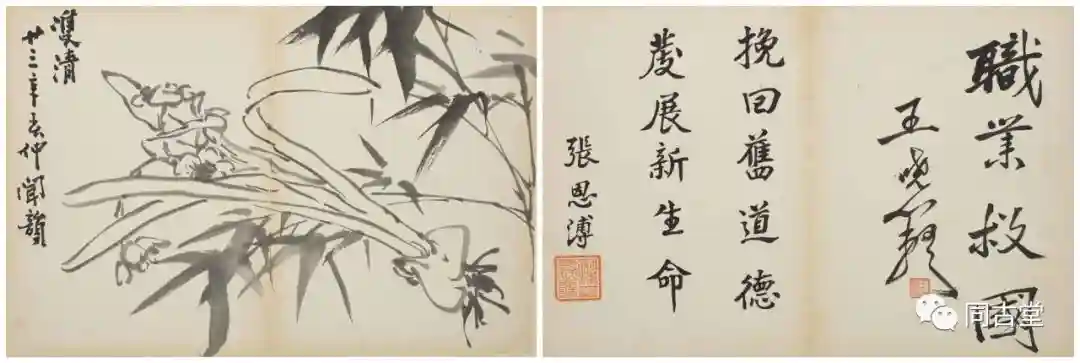 雙清
廿三年春仲 聞韻
職業救國
王曉籟
挽回舊道德
發展新生命
張恩溥
同古堂